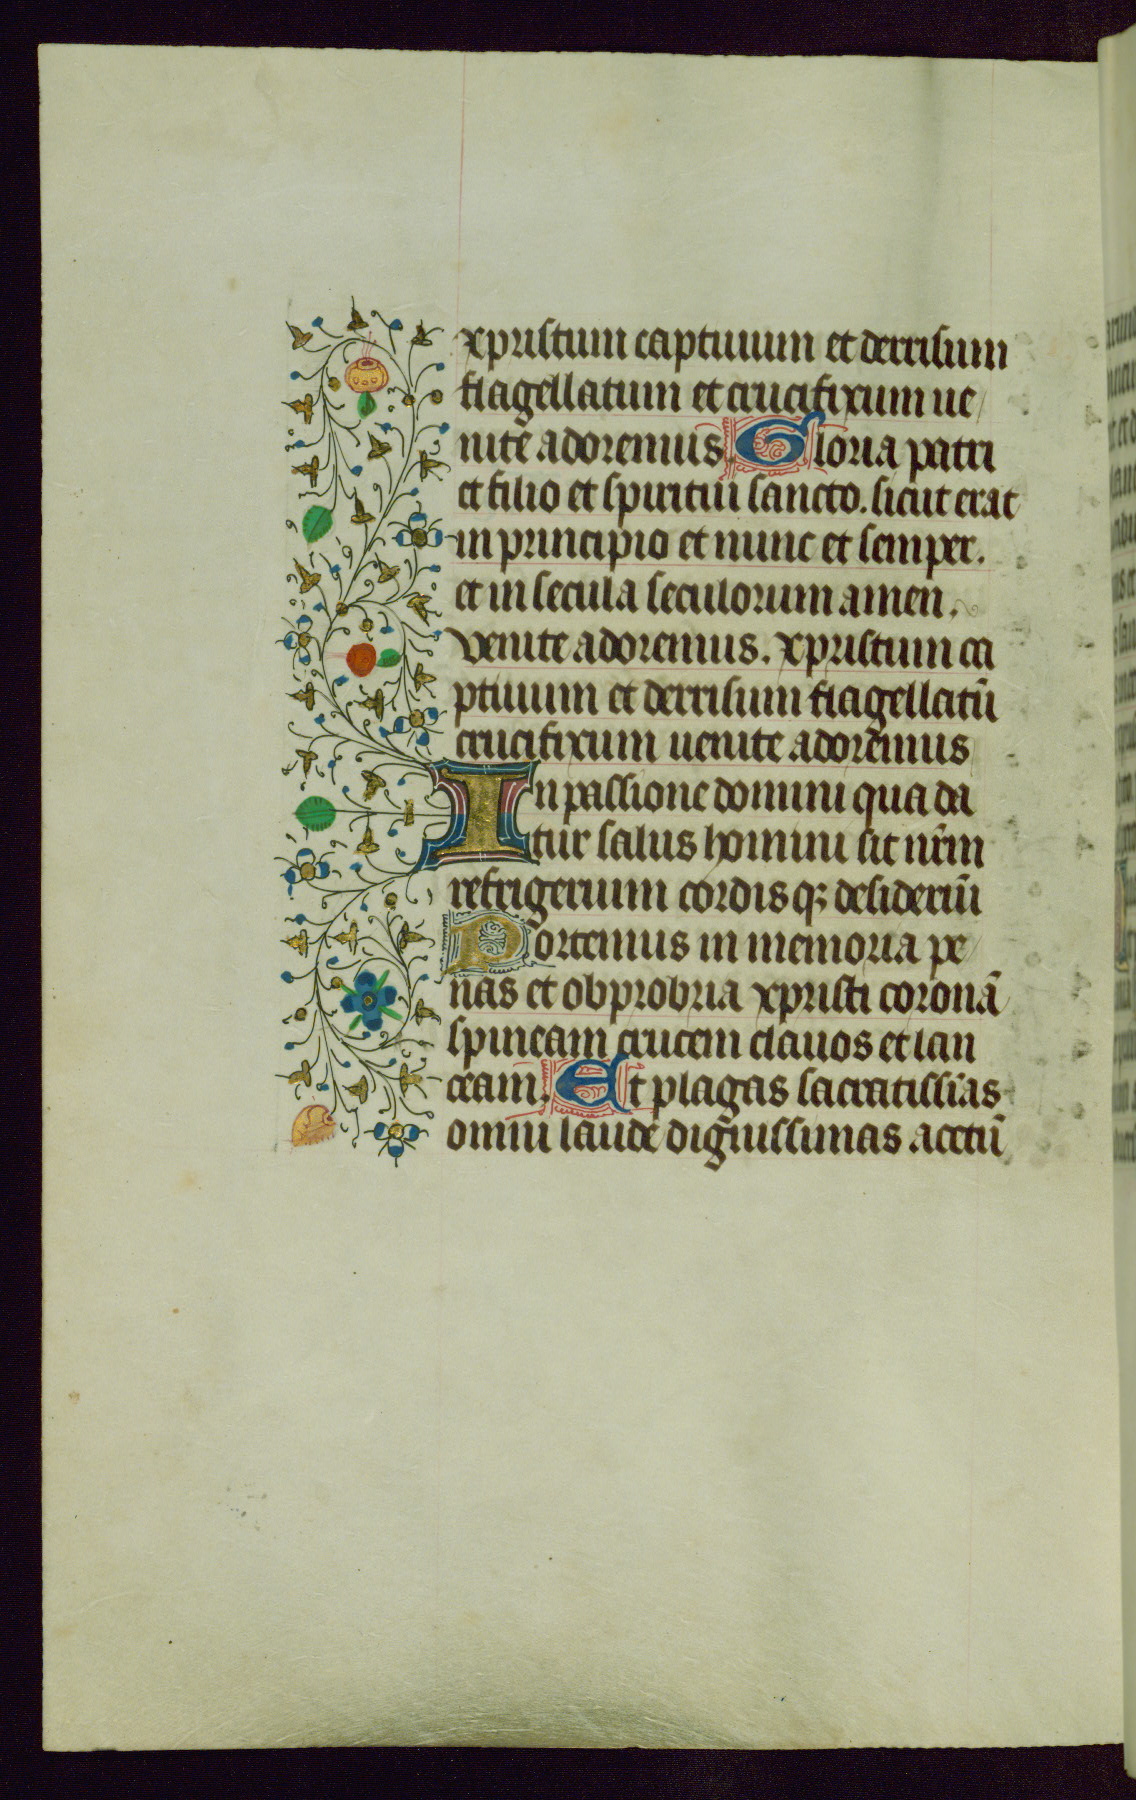 xpristum captiuum et derrisum
flagellatum et crucifixum ue/
nite adoremus. Gloria patri
et filio et spiritui sancto. sicut erat
in principio et nunc et semper.
et in secula seculorum amen.
venite adoremus. xpristum ca
ptiuum et derrisum flagellatū
crucifixum uenite adoremus
In passione domini qua da
tur salus homini sit nr̄m
refrigerium cordis qꝫ desideriū
Portemus in memoria pe/
nas et obprobria xpristi coronā
spineam crucem clauos et lan
ceam. Et plagas sacratissīas
omni laude dignissimas acetū